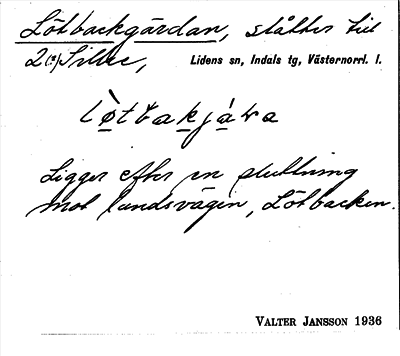 Lötbackgärdan, slåtter till
2(:a) Sillre, Lidens sn, Indals tg, Västernorrl. l.
lo̱tbakjáṟa
Ligger efter en sluttning
mot landsvägen, Lötbacken.
VALTER JANSSON 1936